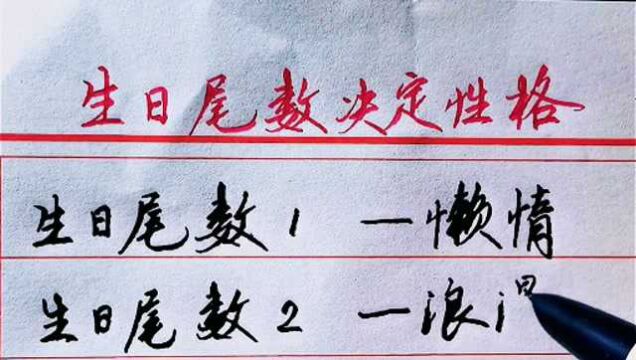 生日尾数决定性格
生日尾数1 —懒惰
生日尾数2 —浪